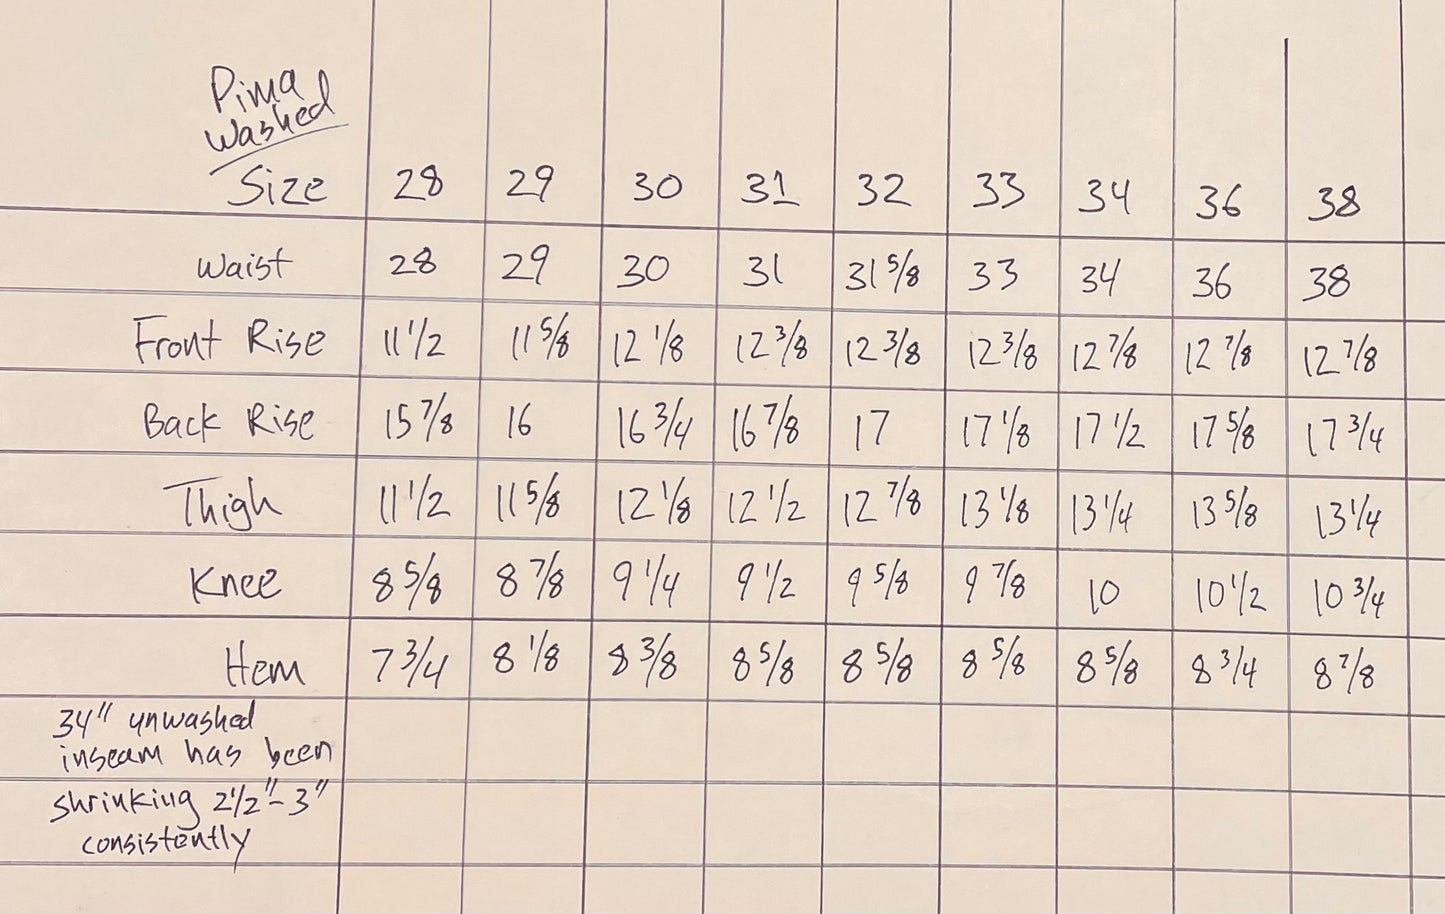 Pima
Washed
Size 28 29 30 31 32 33 34 36 38
Waist 28 29 30 31 31 5/8 33 34 36 38
Front Rise 11 1/2 11 5/8 12 1/8 12 3/8 12 3/8 12 3/8 12 7/8 12 7/8 12 7/8
Back Rise 15 7/8 16 16 3/4 16 7/8 17 17 1/8 17 1/2 17 5/8 17 3/4
Thigh 11 1/2 11 5/8 12 1/8 12 1/2 12 7/8 13 1/8 13 1/4 13 5/8 13 1/4
Knee 8 5/8 8 7/8 9 1/4 9 1/2 9 5/8 9 7/8 10 10 1/2 10 3/4
Hem 7 3/4 8 1/8 8 3/8 8 5/8 8 5/8 8 5/8 8 5/8 8 3/4 8 7/8
34" unwashed
inseam has been
shrinking 2 1/2"-3"
consistently